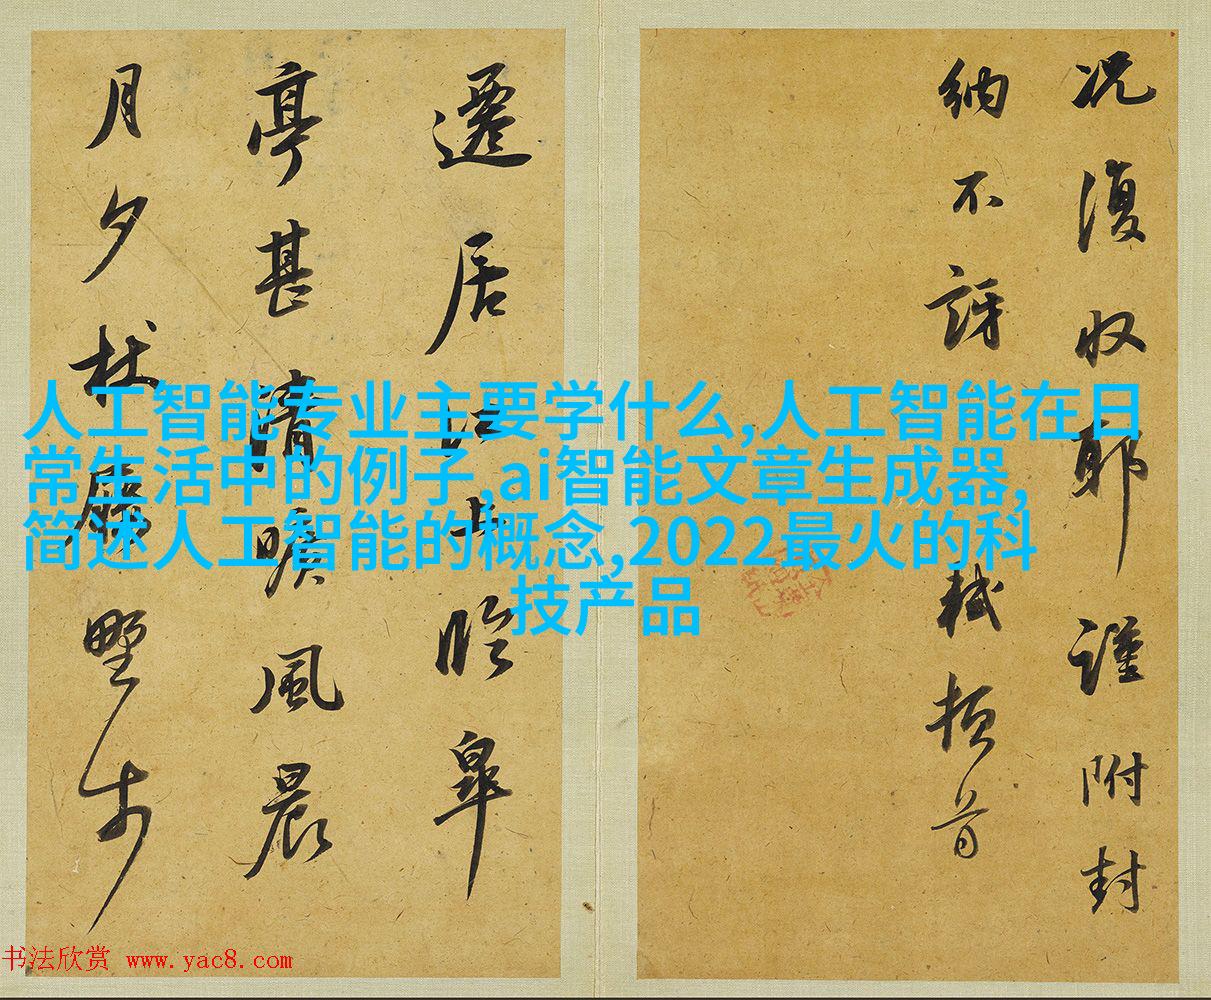 况復収耶謹附封
納不訝軾頓首
遷居江上臨皋
亭甚清曠風晨
月夕杖屨野步
人工智能专业主要学什么,人工智能在日
常生活中的例子,ai智能文章生成器,
简述人工智能的概念,2022最火的科
技产品
书法欣赏 www.yac8.com